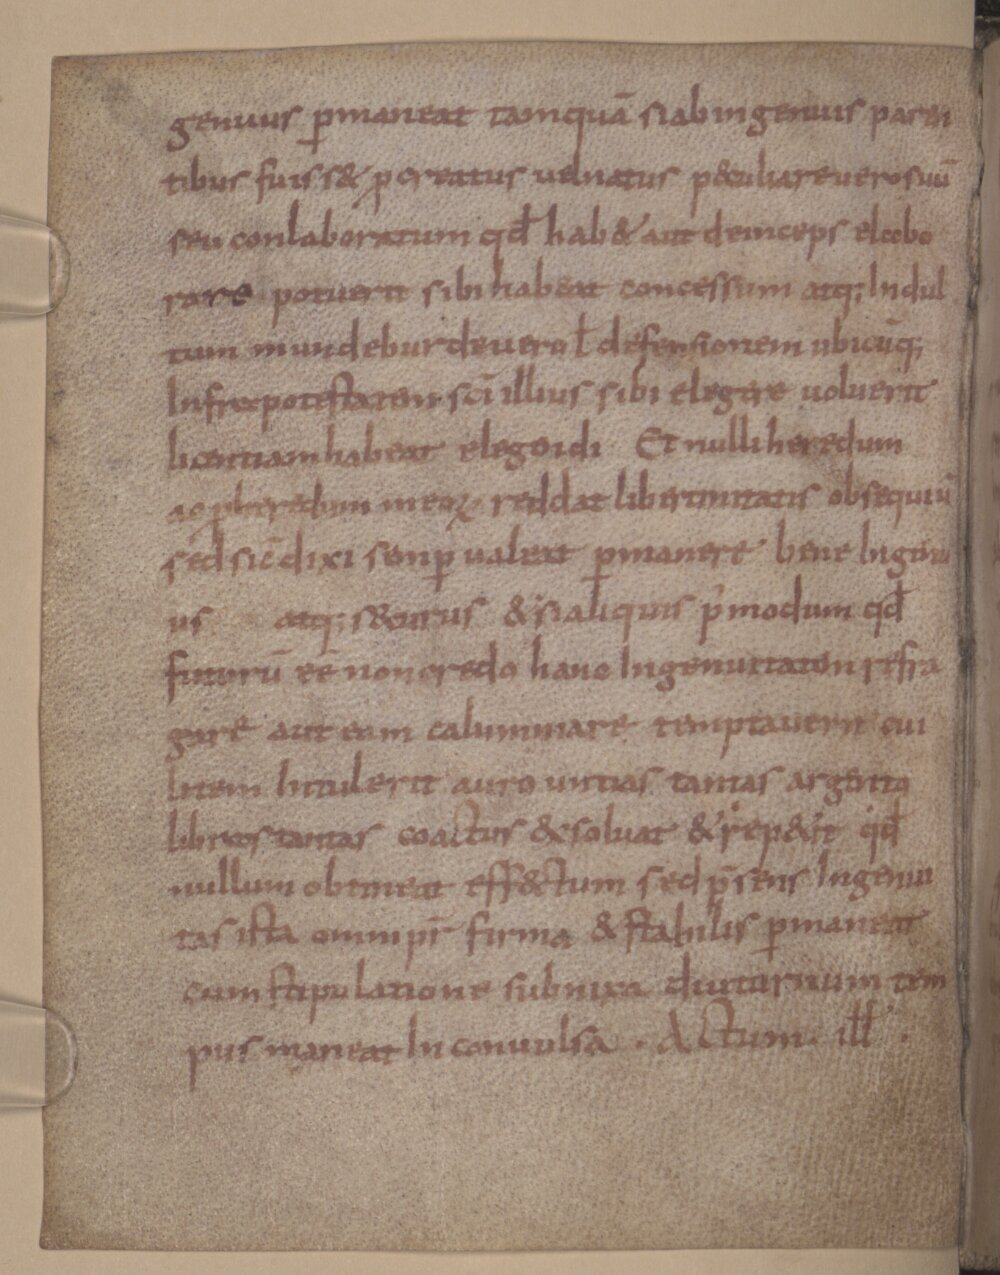 genuus p̄maneat tamquā siab ingenuis paren
tibus fuiss& ꝓcreatus uelnatus p&culiareuerosuū
seu conlaboratum qd̄ hab& aut deinceps elabo
rare potuerit sibi habeat concessum atq; Indul
tum mundeburdeuero l̄ defensionem ubicūq;
Infra potestatem sc̄i illius sibi elegere uoluerit
licentiam habeat elegendi Et nulli heredum
ac ꝓheredum meoꝝ reddat libertinitatis obsequiū
sed sic̄ dixi semp̄ ualeat p̄manere bene Ingenu
us atq; s&curus & si aliquis p̄modum qd̄
futurū eē non credo hanc Ingenuitatem refra
gare aut eam caluminare temptauerit cui
litem Intulerit auro untias tantas argento
libras tantas coactus &soluat & rep&it qd̄
nullum obteneat eff&ctum sed p̄sens Ingenui
tas ista omni pr̄ firma & stabilis p̄maneat
cum stipulatione subnixa diuturnum tem
pus maneat Inconuulsa . Actum . ill̄ .